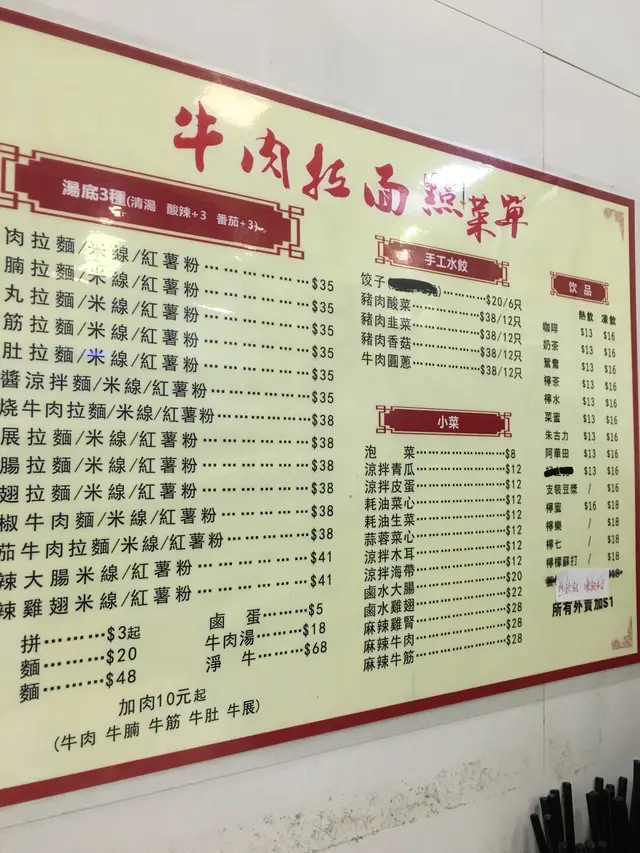 牛肉拉面 點菜單
湯底3種(清湯 酸辣+3 番茄+3)
肉拉麵/米線/紅薯粉 $35
腩拉麵/米線/紅薯粉 $35
丸拉麵/米線/紅薯粉 $35
筋拉麵/米線/紅薯粉 $35
肚拉麵/米線/紅薯粉 $35
醬涼拌麵/米線/紅薯粉 $35
燒牛肉拉麵/米線/紅薯粉 $38
展拉麵/米線/紅薯粉 $38
腸拉麵/米線/紅薯粉 $38
翅拉麵/米線/紅薯粉 $38
椒牛肉麵/米線/紅薯粉 $38
茄牛肉拉麵/米線/紅薯粉 $38
辣大腸米線/紅薯粉 $41
辣雞翅米線/紅薯粉 $41
拼 $3起
麵 $20
麵 $48
鹵蛋 $5
牛肉湯 $18
淨牛 $68
加肉10元起
(牛肉 牛腩 牛筋 牛肚 牛展)
手工水餃
饺子 $20/6只
豬肉酸菜 $38/12只
豬肉韭菜 $38/12只
豬肉香菇 $38/12只
牛肉圓蔥 $38/12只
小菜
泡菜 $8
涼拌青瓜 $12
涼拌皮蛋 $12
耗油菜心 $12
耗油生菜 $12
蒜蓉菜心 $12
涼拌木耳 $12
涼拌海帶 $12
鹵水大腸 $20
鹵水雞翅 $22
麻辣雞腎 $28
麻辣牛肉 $28
麻辣牛筋 $28
饮品
熱飲 凍飲
咖啡 $13 $16
奶茶 $13 $16
鴛鴦 $13 $16
檸茶 $13 $16
檸水 $13 $16
菜蜜 $13 $16
朱古力 $13 $16
阿華田 $13 $16
$13 $16
支裝豆漿 / $16
檸蜜 $16 $18
檸樂 / $18
檸七 / $18
檸檬蘇打 / $18
所有外賣加$1